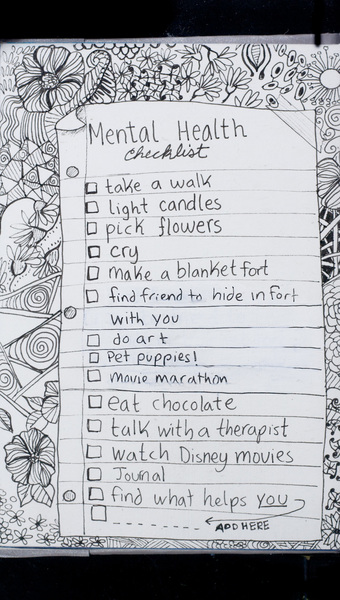 Mental Health
checklist
take a walk
light candles
pick flowers
cry
make a blanket fort
find friend to hide in fort
with you
do art
Pet puppies!
movie marathon
eat chocolate
talk with a therapist
watch Disney movies
Journal
find what helps you
ADD HERE